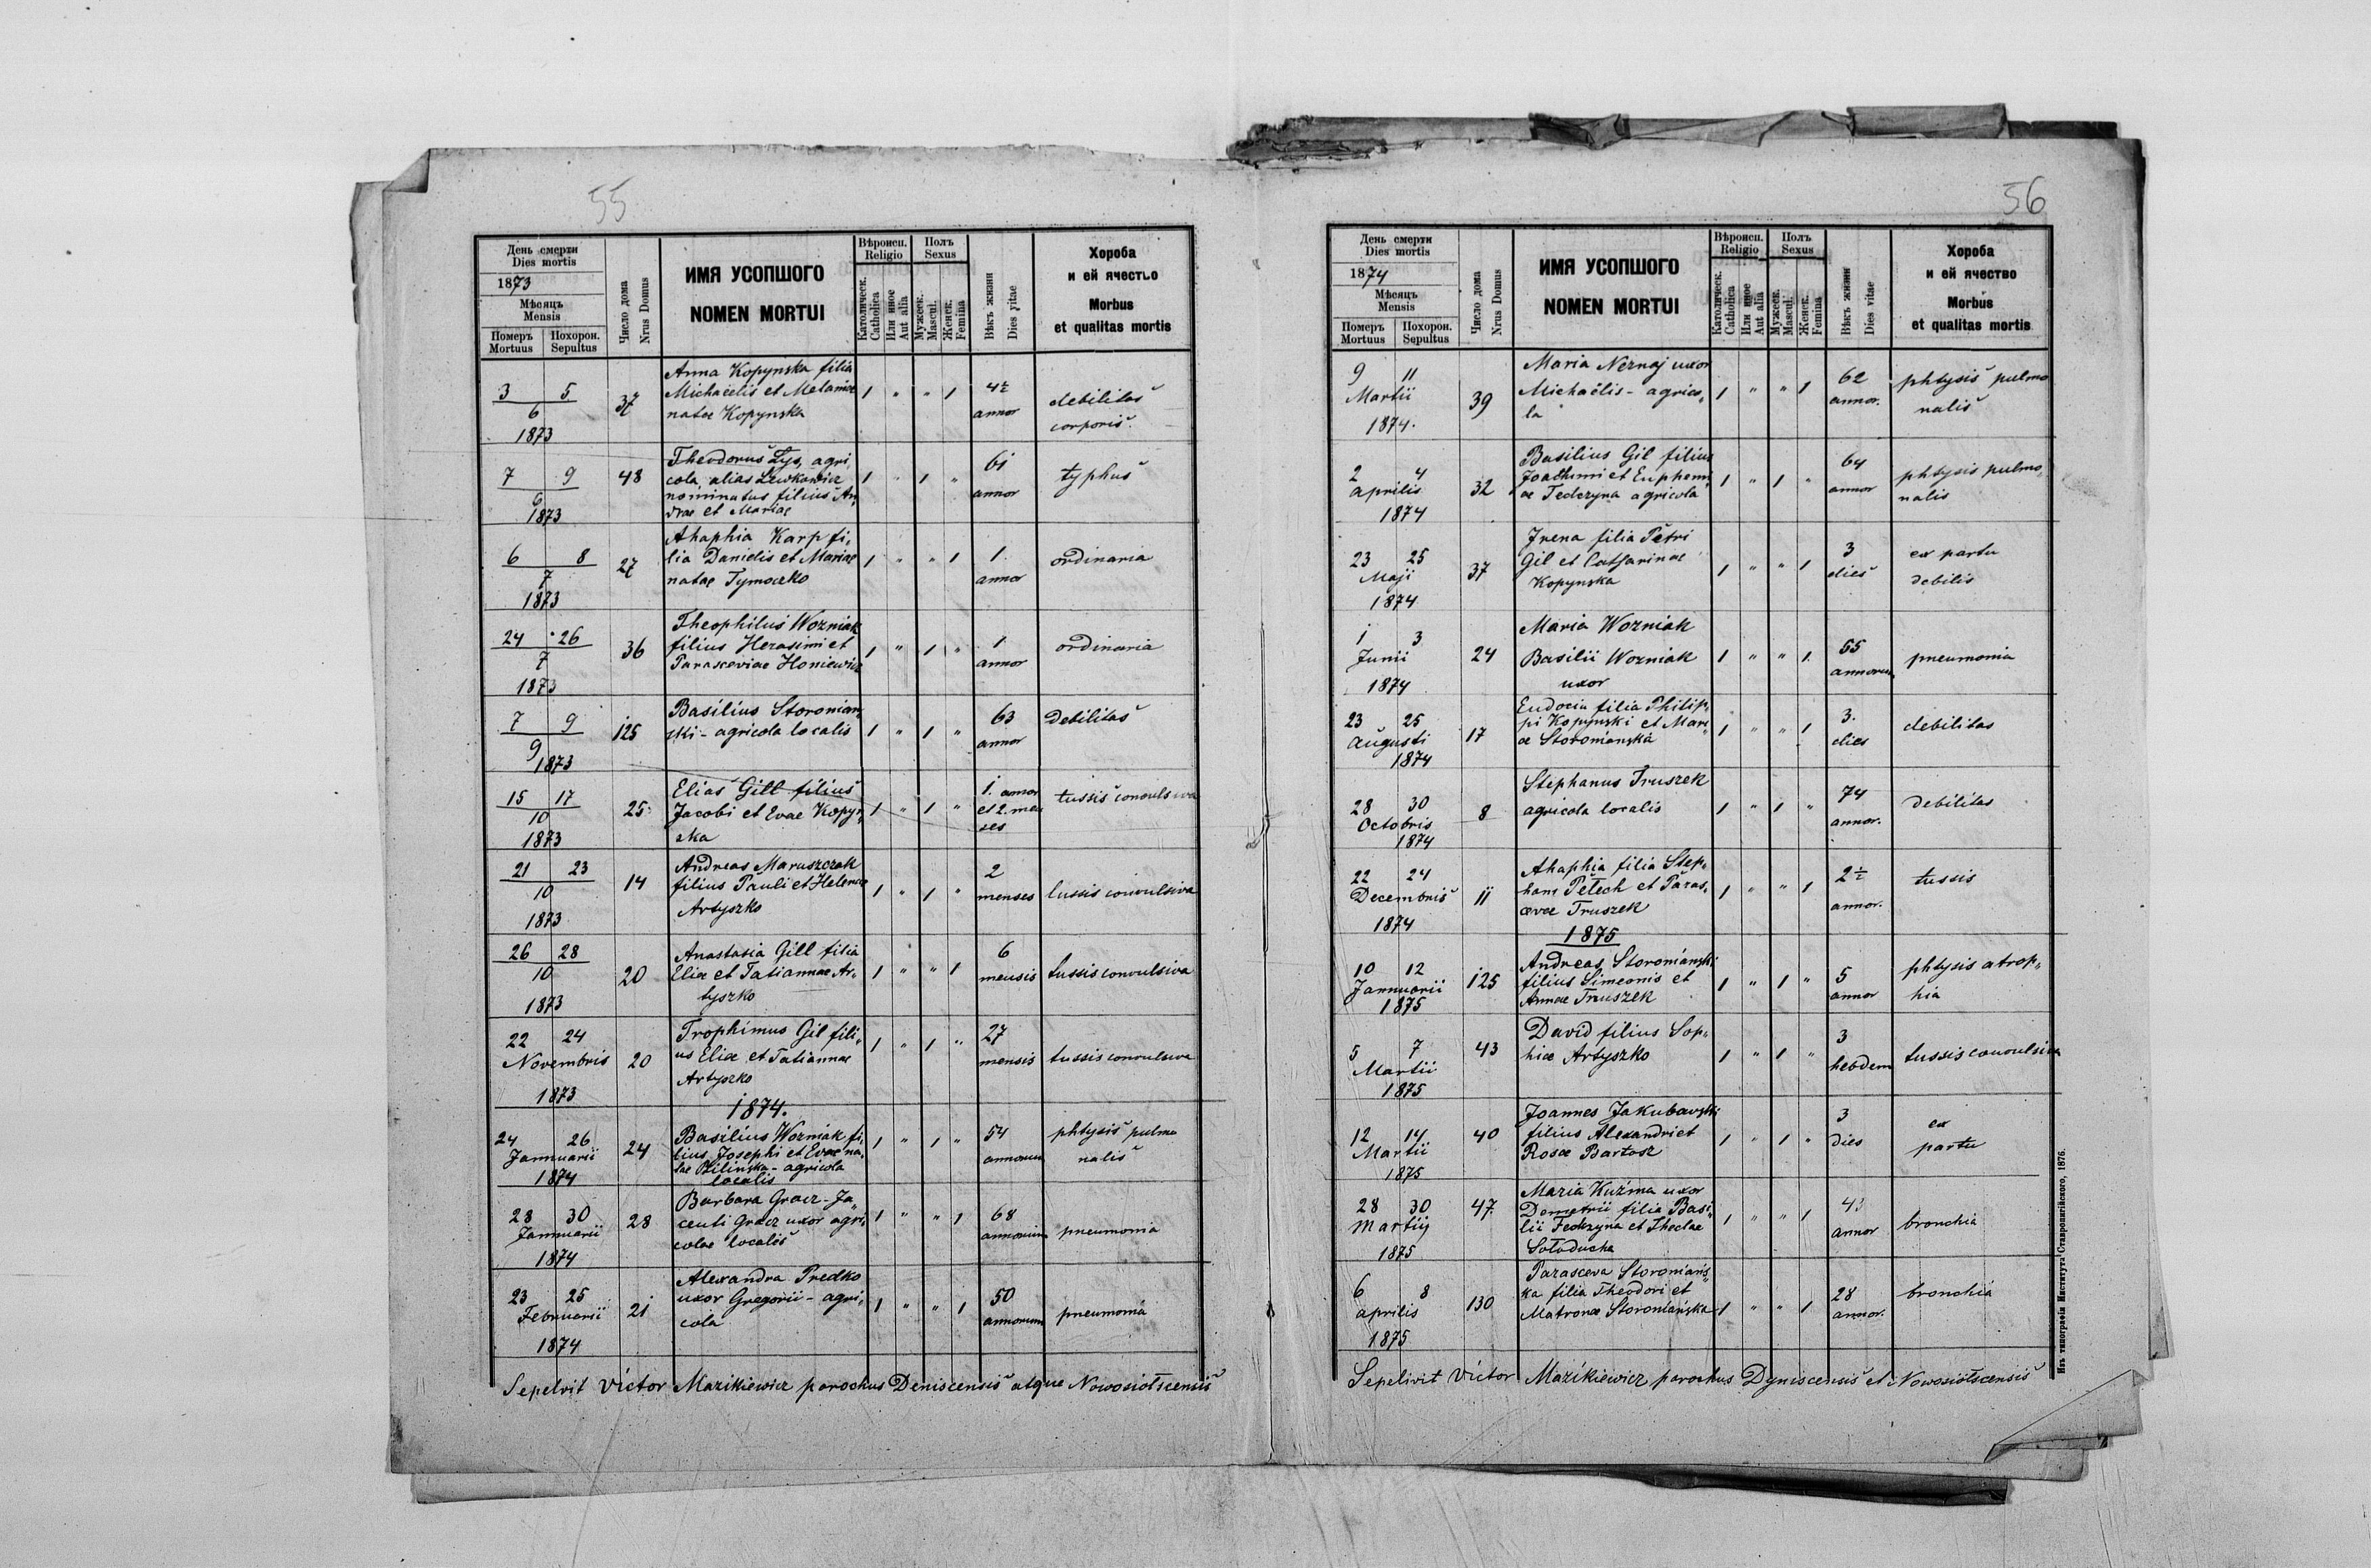 55
День смерти
Dies mortis
1873
Мѣсяцъ
Mensis
Померъ Похорон.
Mortuus Sepultus
Число дома
Nrus Domus
ИМЯ УСОПШОГО
NOMEN MORTUI
Вѣроисп.
Religio
Католическ.
Catholica
Или иное
Aut alia
Полъ
Sexus
Мужеск.
Mascul.
Женск.
Femina
Вѣкъ жизни
Dies vitae
Хороба
и ей ячество
Morbus
et qualitas mortis
3 5
6
1873
37
Anna Kopynska filia
Michaëlis et Melaniae
natae Kopynska
1 " " 1
4½
annor
debilitas
corporis.
7 9
6
1873
48
Theodorus Lys, agri
cola, alias Lewkowicz
nominatus filius An
drae et Mariae
1 " 1 "
61
annor
typhus
6 8
7
1873
27
Ahaphia Karp fi,
lia Danielis et Mariae
natae Tymoczko
1 " " 1
1.
annor
ordinaria
24 26
7
1873
36
Theophilus Wozniak
filius Herasimi et
Parasceviae Honiewicz
1 " 1 "
1
annor
ordinaria
7 9
9
1873
125
Basilius Storonian,
ski - agricola localis
1 " 1 "
63
annor
debilitas
15 17
10
1873
25
Elias Gill filius
Jacobi et Evae Kopyn,
ska
1 " 1 "
1. annor
et 2. men
ses
tussis convulsiva
21 23
10
1873
14
Andreas Maruszczak
filius Pauli et Helenae
Artyszko
1 " 1 "
2
menses
tussis convulsiva
26 28
10
1873
20
Anastasia Gill filia
Eliæ et Tatiannae Ar,
tyszko
1 " " 1
6
mensis
tussis convulsiva
22 24
Novembris
1873
20
Trophimus Gil fili,
us Eliæ et Tatiannae
Artyszko
1 " 1 "
27
mensis
tussis convulsiva
1874.
24 26
Jannuarii
1874
24
Basilius Wozniak fi,
lius Josephi et Evae na,
tae Bilinska - agricola
localis
1 " 1 "
54
annorum
phtysis pulmo
nalis
28 30
Jannuarii
1874
28
Barbara Gracz - Ja,
centi Gracz uxor agri,
colae localis
1 " " 1
68
annorum
pneumonia
23 25
Februarii
1874
21
Alexandra Predko
uxor Gregorii - agri,
cola
1 " " 1
50
annorum
pneumonia
Sepelvit Victor Mazikiewicz parochus Deniscensis atque Nowosiołscensis
56
День смерти
Dies mortis
1874
Мѣсяцъ
Mensis
Померъ Похорон.
Mortuus Sepultus
Число дома
Nrus Domus
ИМЯ УСОПШОГО
NOMEN MORTUI
Вѣроисп.
Religio
Католическ.
Catholica
Или иное
Aut alia
Полъ
Sexus
Мужеск.
Mascul.
Женск.
Femina
Вѣкъ жизни
Dies vitae
Хороба
и ей ячество
Morbus
et qualitas mortis
9 11
Martii
1874.
39
Maria Neznaj uxor
Michaëlis - agrico,
la
1 " " 1
62
annor.
phtysis pulmo
nalis
2 4
aprilis
1874
32
Basilius Gil filius
Joachimi et Euphemi,
ae Fedczyna agricola
1 " 1 "
64
annor
phtysis pulmo,
nalis
23 25
Maji
1874
37
Irena filia Petri
Gil et Catharinae
Kopynska
1 " " 1
3
dies
ex partu
debilis
1 3
Junii
1874
24
Maria Wozniak
Basilii Wozniak
uxor
1 " " 1.
55
annorum
pneumonia
23 25
augusti
1874
17
Eudocia filia Philip,
pi Kopynski et Mari
æ Storonianska
1 " " 1
3.
dies
debilitas
28 30
Octobris
1874
8
Stephanus Truszek
agricola localis
1 " 1 "
74
annor.
debilitas
22 24
Decembris
1874
11
Ahaphia filia Step,
hani Petech et Paras,
cevæ Truszek
1 " " 1
2½
annor.
tussis
1875
10 12
Jannuarii
1875
125
Andreas Storonianski
filius Simeonis et
Annae Truszek
1 " 1 "
5
annor
phtysis atrop,
hia
5 7
Martii
1875
43
David filius Sop,
hiæ Artyszko
1 " 1 "
3
hebdom
tussis convulsiva
12 14
Martii
1875
40
Joannes Jakubowski
filius Alexandri et
Rosæ Bartosz
1 " 1 "
3
dies
ex
partu
28 30
Martii
1875
47.
Maria Kuźma uxor
Demetrii filia Basi,
lii Fedczyna et Theclae
Sołoducha
1 " " 1
43
annor
bronchia
6 8
aprilis
1875
130
Parasceva Storoniańs,
ka filia Theodori et
Matronæ Storoniańska
1 " " 1
28
annor.
bronchia
Sepelivit Victor Mazikiewicz parochus Dyniscensis et Nowosiołscensis
Изъ типографіи Института Ставропигійского, 1876.